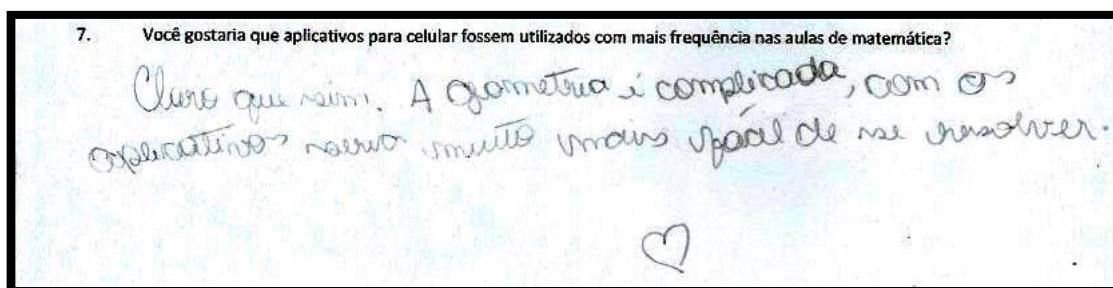 7. Você gostaria que aplicativos para celular fossem utilizados com mais frequência nas aulas de matemática?
Claro que sim. A geometria é complicada, com os
aplicativos seria muito mais fácil de se resolver.